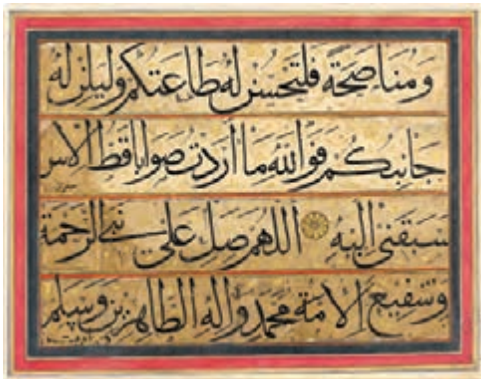 ومناصحة فلتحسن له طاعتكم وليلن له
جانبكم فوالله ما اردت صوابا قط الا
سبقني اليه اللهم صل على نبي الرحمة
وشفيع الامة محمد واله الطاهرين وسلم